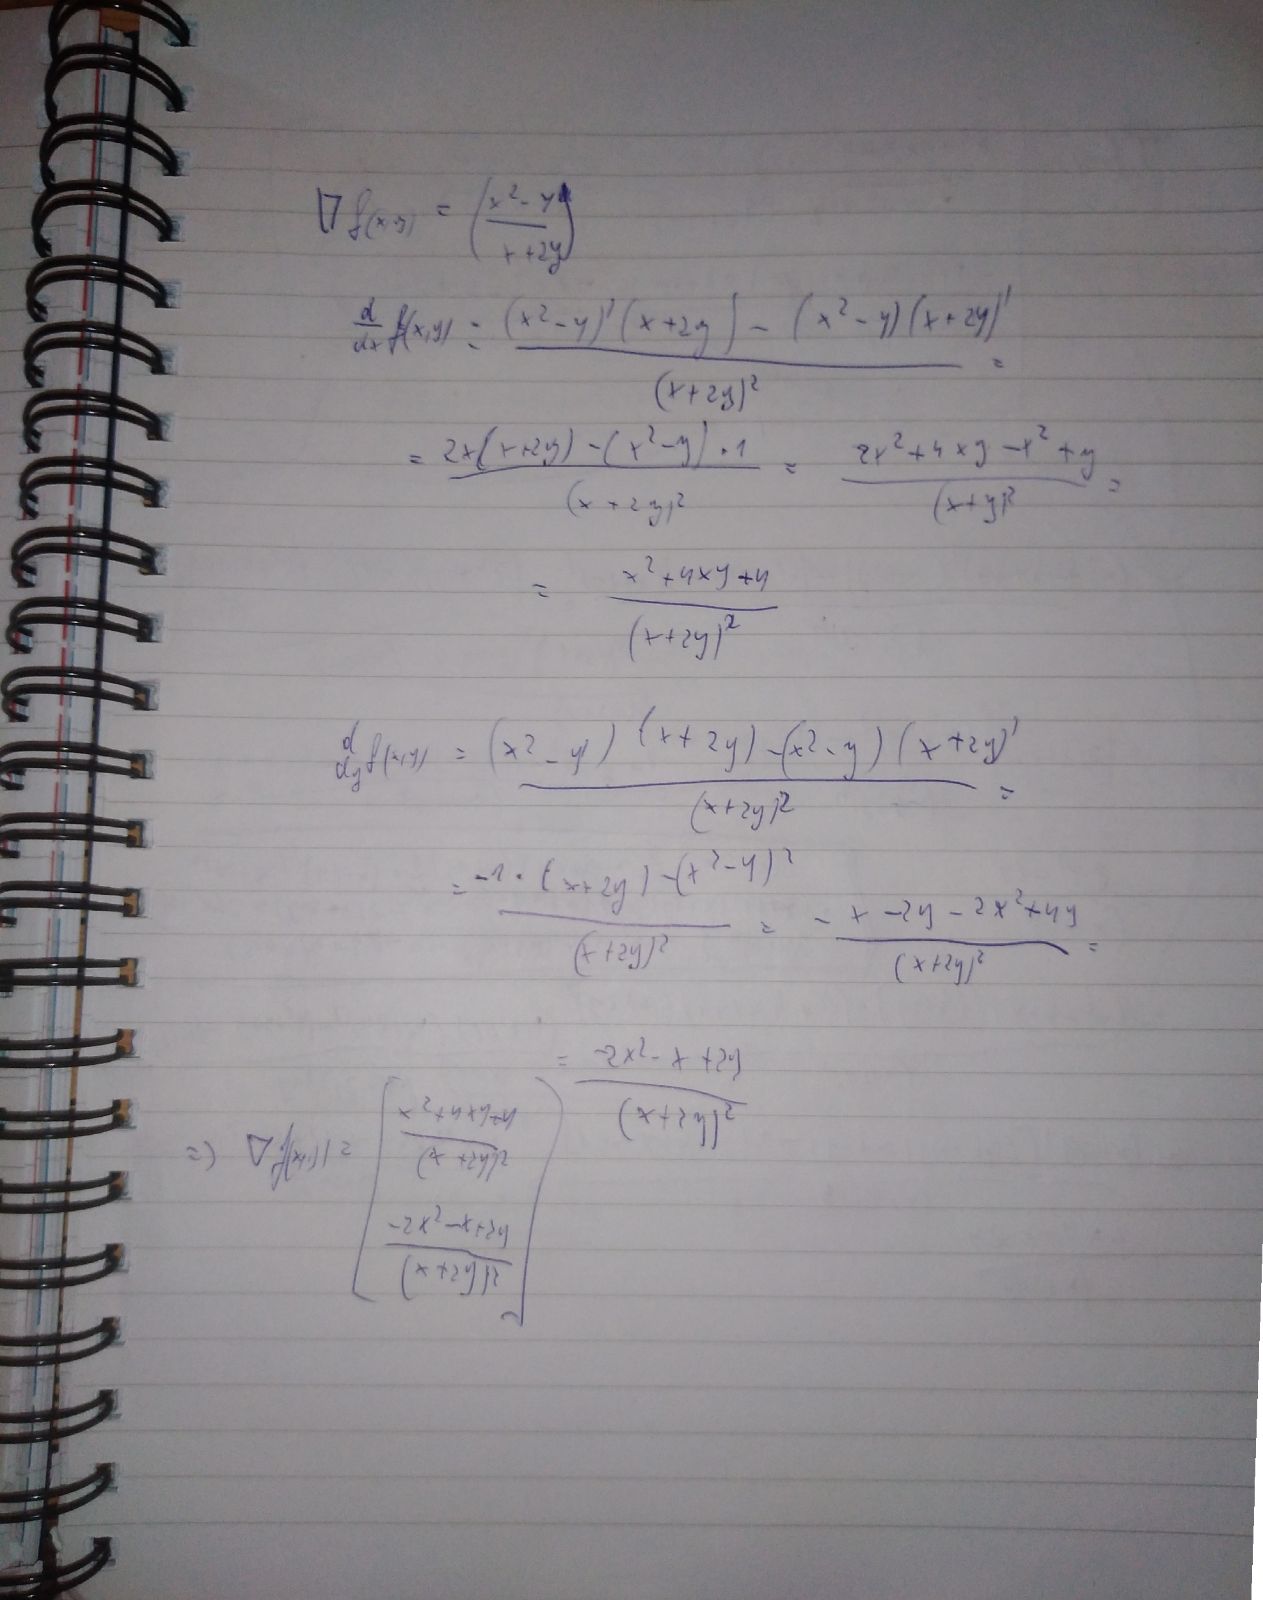 ∇f(x,y) = (x² - y / x + 2y)
d/dx f(x,y) = (x² - y)' (x + 2y) - (x² - y)(x + 2y)' / (x + 2y)² =
= 2x(x + 2y) - (x² - y) · 1 / (x + 2y)² = 2x² + 4xy - x² + y / (x + y)² =
= x² + 4xy + y / (x + 2y)²
d/dy f(x,y) = (x² - y) (x + 2y) - (x² - y)(x + 2y)' / (x + 2y)² =
= -1 · (x + 2y) - (x² - y) 2 / (x + 2y)² = -x - 2y - 2x² + 4y / (x + 2y)² =
= -2x² - x + 2y / (x + 2y)²
=> ∇f(x,y) = [x² + 4xy + y / (x + 2y)²
-2x² - x + 2y / (x + 2y)²]